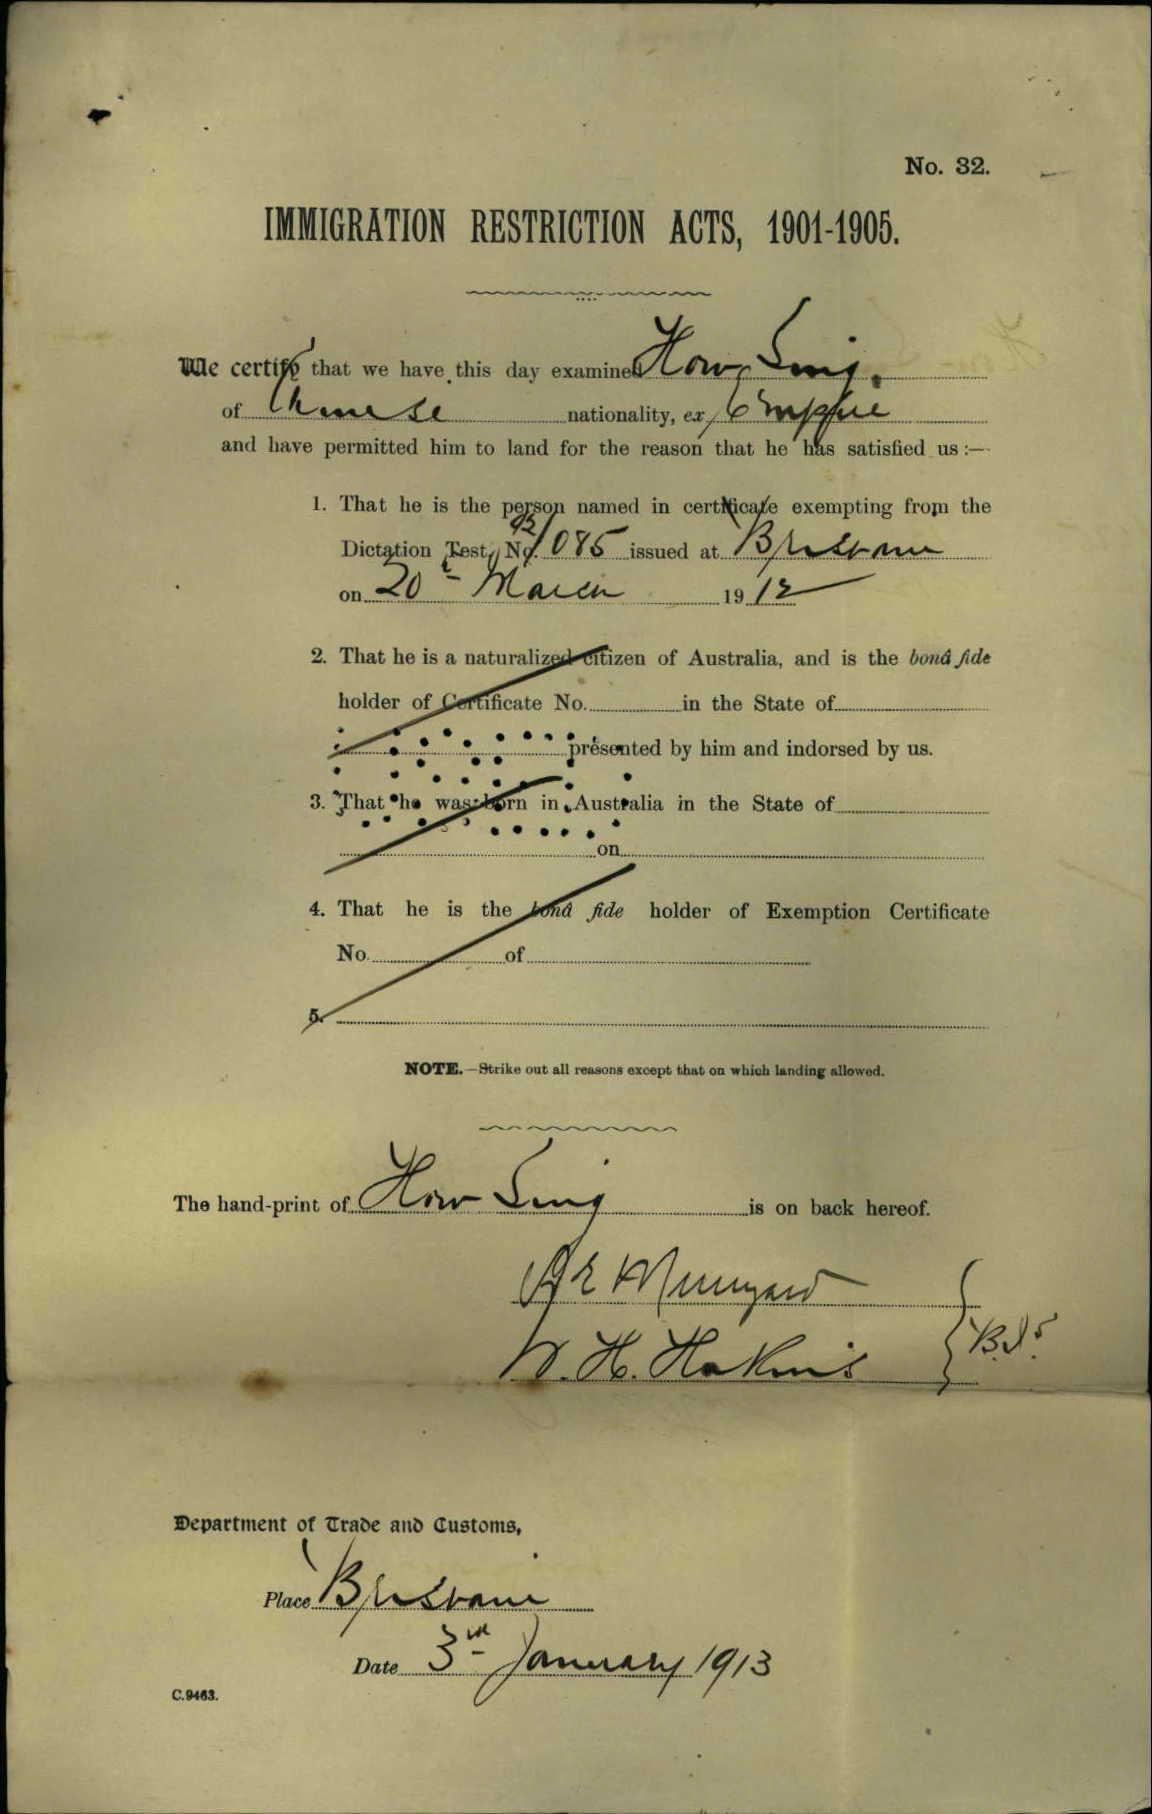 No. 32.
IMMIGRATION RESTRICTION ACTS, 1901-1905.
We certify that we have this day examined How Sing.
of Chinese nationality, ex Empire
and have permitted him to land for the reason that he has satisfied us :—
1. That he is the person named in certificate exempting from the
Dictation Test, No. 12/085 issued at Brisbane
on 20th March 1912
2. That he is a naturalized citizen of Australia, and is the bonâ fide
holder of Certificate No. in the State of
presented by him and indorsed by us.
3. That he was born in Australia in the State of
on
4. That he is the bonâ fide holder of Exemption Certificate
No. of
5.
NOTE.—Strike out all reasons except that on which landing allowed.
The hand-print of How Sing is on back hereof.
W. H. Hakins
Department of Trade and Customs,
Place Brisbane
Date 3rd January 1913
C.9463.